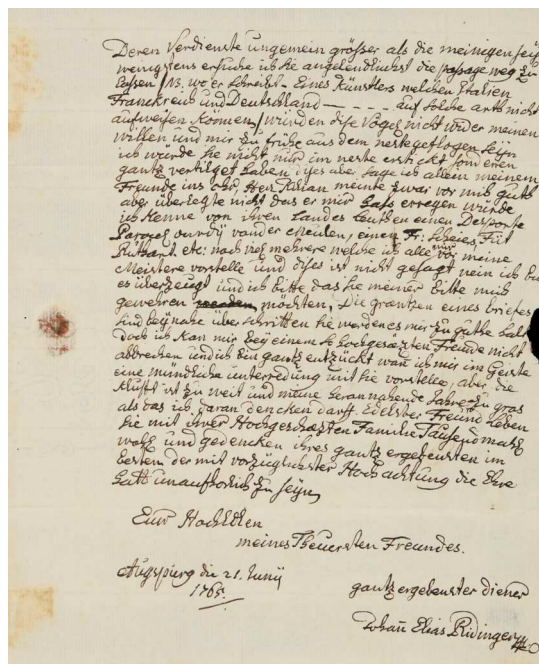 Deren Verdienste ungemein grösser als die meinigen seyn
wenigstens ersuche ich sie angelendlichst die passage weg zu
lassen / NB. wo er schreibt - Eines Künstlers welchen Italien
Franckreich und Deutschland - - - - - auf solche arth nicht
aufweisen können / würden dise Vögel nicht wider meinen
willen und mir zu frühe aus dem neste geflogen seyn
ich würde sie nicht nur im neste erstickt sonderen
gantz vertilget haben dises aber sage ich allein meinem
Freunde ins ohr, Herr Kilian meinte zwar vor mich guth
aber überlegte nicht das er mir hass erregen würde
ich kenne von ihren Landes Leuthen einen Desporte
Parocel ourdry van der Meulen, einen Fr: Sneies, Füt
Ruthart. etc: noch vihl mehrere welche ich alle vor meine
Meistere vorstelle und dises ist nicht gesagt nein ich bin
es überzeugt und ich bitte das sie meiner bitte mich
gewehren möchten, Die grantzen eines briefes
sind beynahe überschritten sie werden es mir zu guthe halt
doch ich kan mir bey einem so hochgesezten Freunde nicht
abbrechen und ich bin gantz entzückt wan ich mir im Geiste
eine mündliche unterredung mit sie vorstelle, aber die
klufft ist zu weit und meine heran nahende Jahre zu gros
als das ich daran dencken darff. Edelster Freund leben
sie mit ihrer Hochgeschäzten Familie Tausendmahl
wohl und gedencken ihres gantz ergebensten im
besten der mit vorzüglichster Hochachtung die Ehre
hatt unaufhörlich zu seyn
Euer HochEdlen
meines Theuersten Freundes.
Augspurg die 21. Junij
1765.
gantz ergebenster diener
Johañ Elias Ridinger